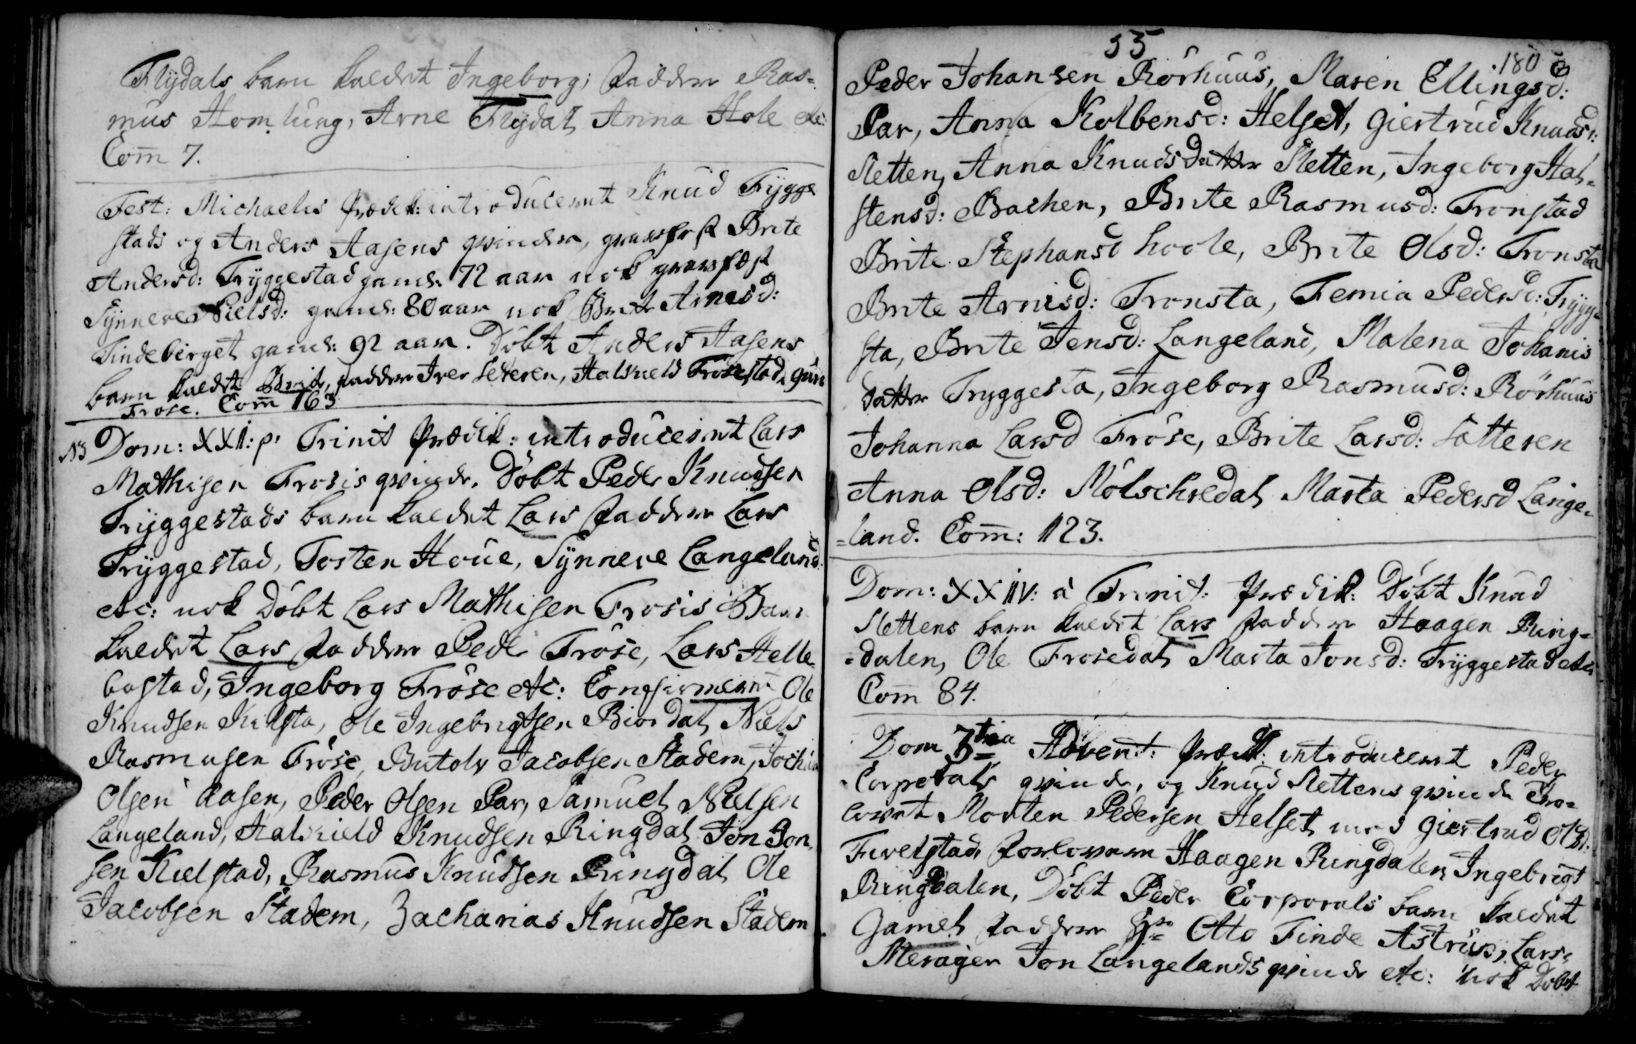 Flydals barn kaldet Ingeborg, faddere Ras-
mus Homlung, Arne Flydal, Anna Hole etc:
Com 7.
Fest: Michaelis prædik: introduceret Knud Trygge
stads og Anders Aasens qvinder, Brite
Andersd: Tryggestad gaml: 72 aar nok
Synneve Nielsd: gaml: 80 aar nok Brite Arnesd:
Tindebirget gaml: 92 aar. Døbt Anders Aasens
barn kaldet Brit, faddere Iver Sæteren, Halvield Frøsestad, Guri
Frøse. Com 163
NB Dom: XXII: p. Trinit prædik: introduceret Lars
Mathisen Frøsis qvinde. Døbt Peder Knudsen
Tryggestads barn kaldet Lars faddere Lars
Tryggestad, Tosten Houe, Synneve Langeland
etc: nok Døbt Lars Mathisen Frøsis Barn
kaldet Lars faddere Peder Frøse, Lars Helle
bostad, Ingeborg Frøse etc: Confirmeret Ole
Knudsen Kilsta, Ole Ingebrigtsen Biordal, Niels
Rasmusen Frøse, Butolv Jacobsen Stadem, Jochum
Olsen Aasen, Peder Olsen Par, Samuel Nielsen
Langeland, Halkield Knudsen Ringdal, Jon Jon
sen Kielstad, Rasmus Knudsen Ringdal Ole
Jacobsen Stadem, Zacharias Knudsen Stadem
55
180
Peder Johansen Rørhuus, Maren Ellingsd:
Par, Anna Kolbensd: Helset, Giertrud Knudsd:
Sletten, Anna Knudsdatter Sletten, Ingeborg Hal-
stensd: Bachen, Brite Rasmusd: Tronstad
Brite Stephansd hoole, Brite Olsd: Tronsta
Brite Arnisd: Tronsta, Femia Pedersd: Trygge
sta, Brite Jensd: Langeland, Malena Johanis
datter Tryggesta, Ingeborg Rasmusd: Rørhuus
Johanna Larsd Frøse, Brite Larsd: Sætteren
Anna Olsd: Molschredal, Marta Pedersd Lange-
=land. Com: 123.
Dom: XXIV: a Trinit: prædik: Døbt Knud
Slettens barn kaldet Lars faddere Haagen Ring-
=dalen, Ole Frosedal, Marta Jonsd: Tryggestad etc:
Com 84.
Dom 3tia Advent: prædik: introduceret Peder
Corporals qvinde, og Knud Slettens qvinde Tro-
lovet Morten Pedersen Helset med Giertrud Olsd:
Fivelstad, forlovere Haagen Ringdalen, Ingebrigt
Ringdalen, Døbt Peder Corporals barn kaldet
Gamel, faddere Hr: Otto Tinde Astrup, Lars
Meragen Jon Langelands qvinde etc: nok Døbt